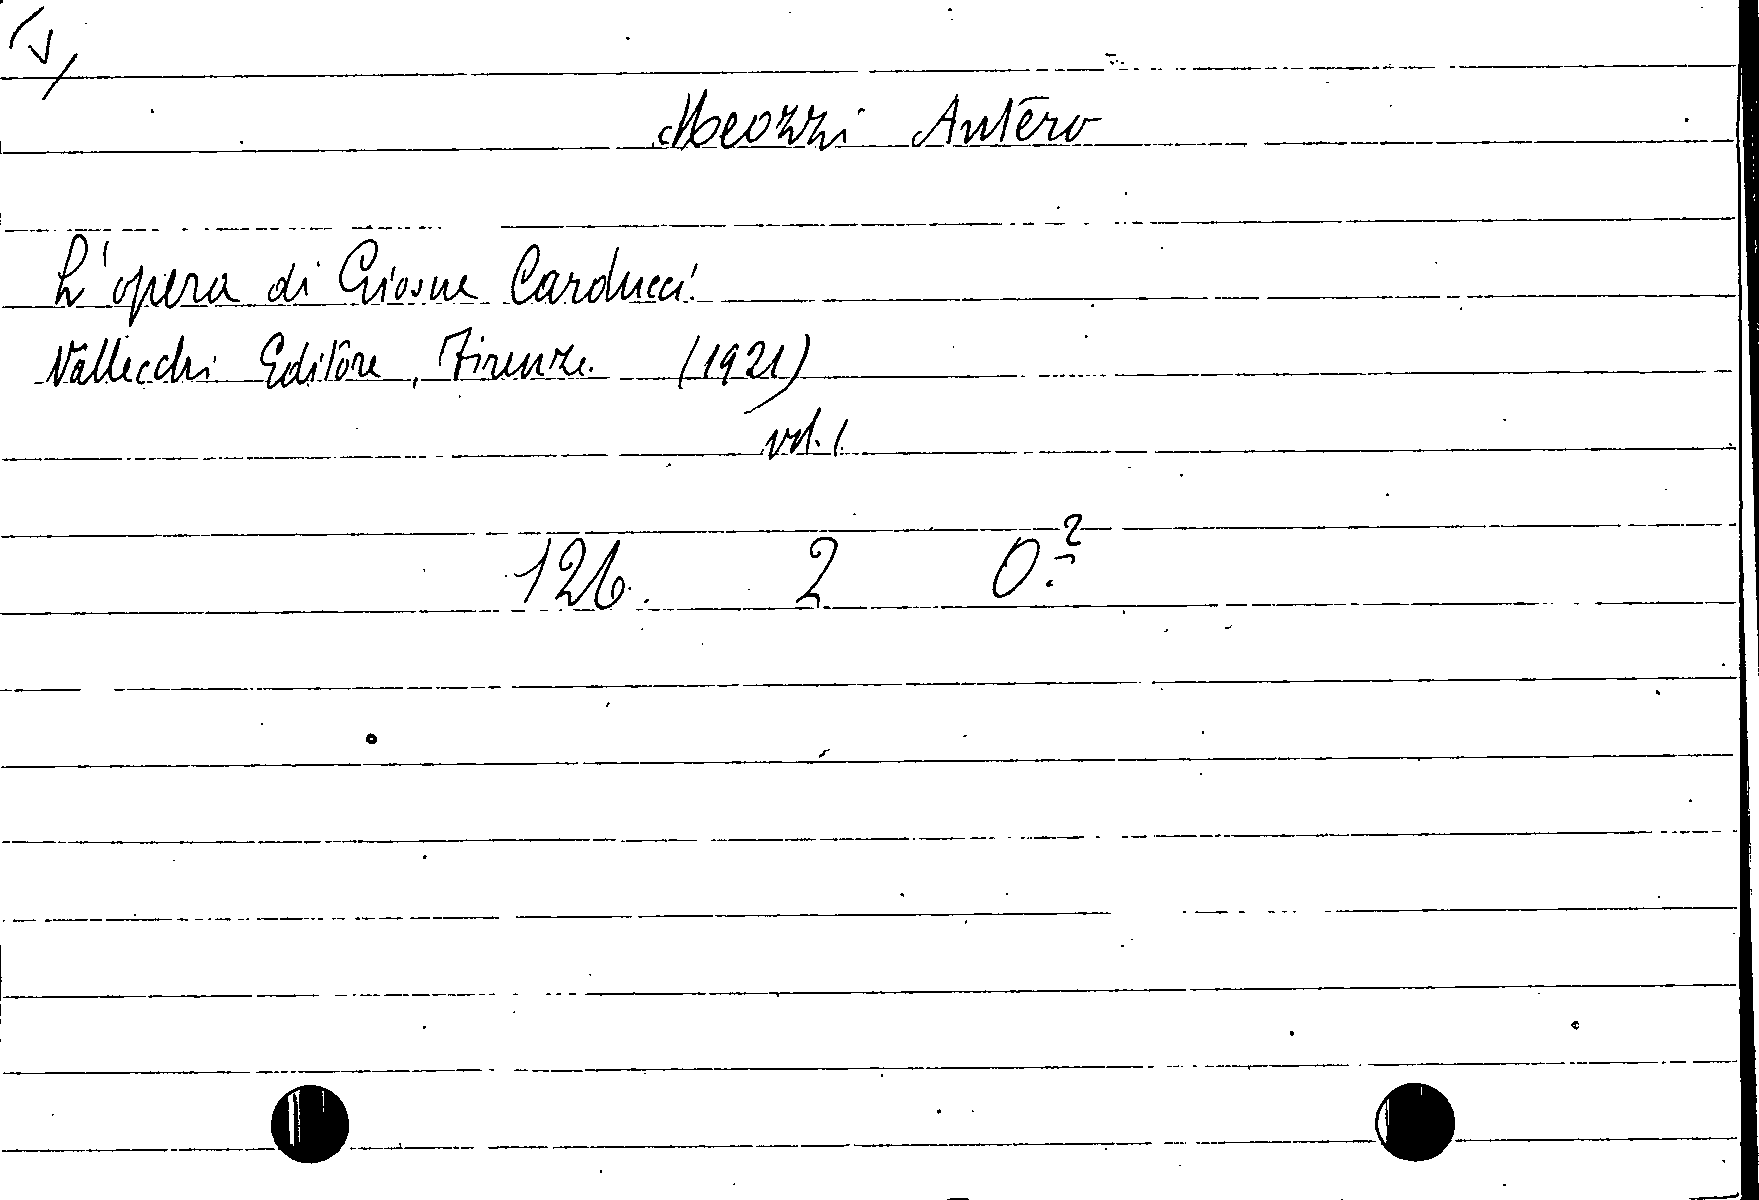 Meozzi Antero
L'opera di Giosue Carducci.
Vallecchi Editore, Firenze. (1921)
vol. 1.
126. 2 0.